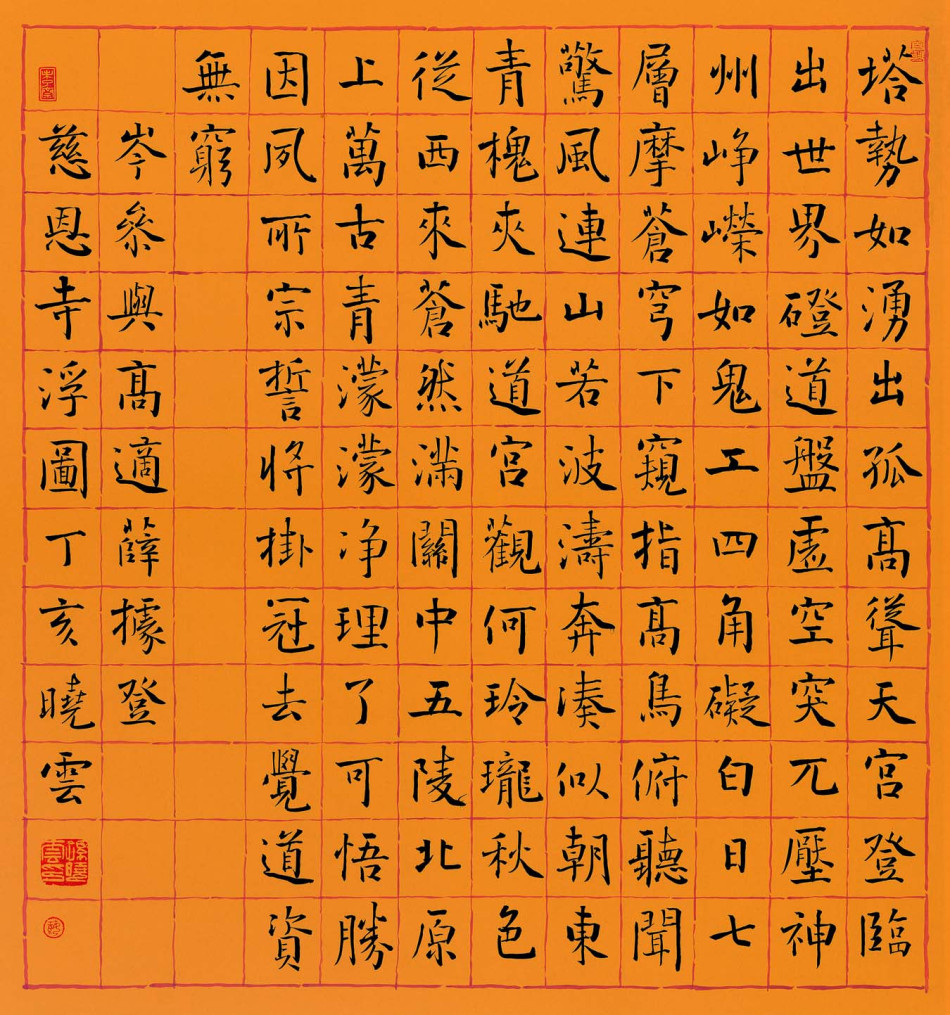 塔勢如湧出孤髙聳天宫登臨
出世界磴道盤虛空突兀壓神
州峥嶸如鬼工四角礙白日七
層摩蒼穹下窺指髙鳥俯聽聞
驚風連山若波濤奔湊似朝東
青槐夾馳道宫觀何玲瓏秋色
從西來蒼然滿關中五陵北原
上萬古青濛濛净理了可悟勝
因夙所宗誓將掛冠去覺道資
無窮
岑參與髙適薛據登
慈恩寺浮圖丁亥曉雲
孫曉雲印